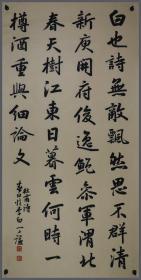 白也詩無敵飄然思不群清
新庾開府俊逸鮑參軍渭北
春天樹江東日暮雲何時一
樽酒重與細論文
杜甫詩
春日憶李白